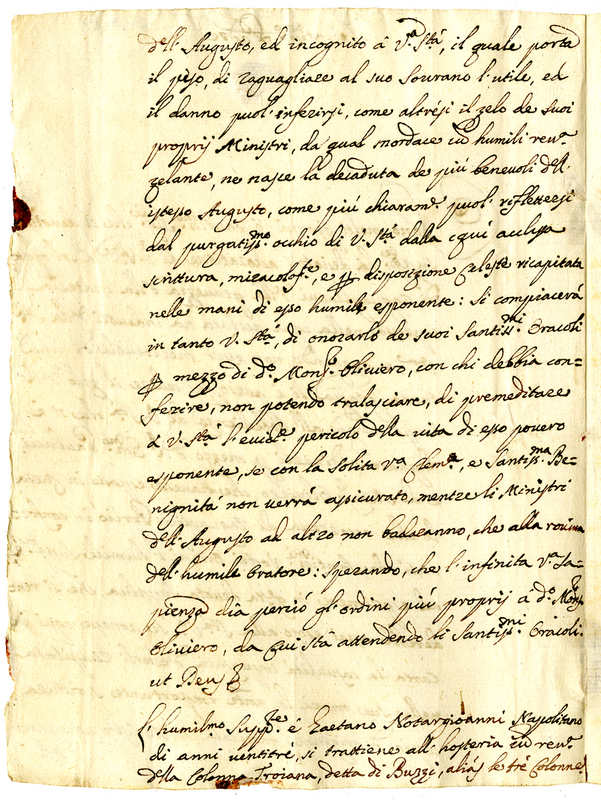 dell'Augusto, ed incognito á V.ª Stá, il quale porta
il peso, di raguagliare al suo Sourano l'utile, ed
il danno puol'inferirsi, come altresi il zelo de suoi
proprij Ministri, da qual mordace humili rev.ᵉ
zelante, ne nasce la decaduta de piú benevoli dell'
istesso Augusto, come piú chiaram.ᵉ puol'riflettersi
dal purgatiss.ᵐᵒ occhio di V. Stá dalla cquí acclusa
scrittura, miracolos.ᵗᵉ, e disposizione Celeste ricapitata
nelle mani di esso humile esponente: si compiacerá
in tanto V. Stá, di onorarlo de suoi Santiss.ᵐⁱ Oracoli
mezzo di d.º Mons.ʳ Oliviero, con chi debbia con=
ferire, non potendo tralasciare, di premeditare
á V. Stá l'evid.ᵉ pericolo della vita di esso povero
esponente, se con la solita V.ª Clem.ª, e Santiss.ᵐᵃ Be=
nignitá non verrá assicurato, mentre li Ministri
dell'Augusto ad altro non badaranno, che alla rovina
dell'humile Oratore: sperando, che l'infinita V.ª Sa=
pienza dia perció gl'ordini piú proprij a d.º Mons.ʳ
Oliviero, da cui stá attendendo li Santiss.ᵐⁱ Oracoli.
ut Deus
L'humilmo Supp.ᵗᵉ é Gaetano Notargioanni Napolitano
di anni ventitré, si trattiene all'hosteria rev.ᵉ
della Colonna Troiana, detta di Buzzi, aliás le tré Colonne